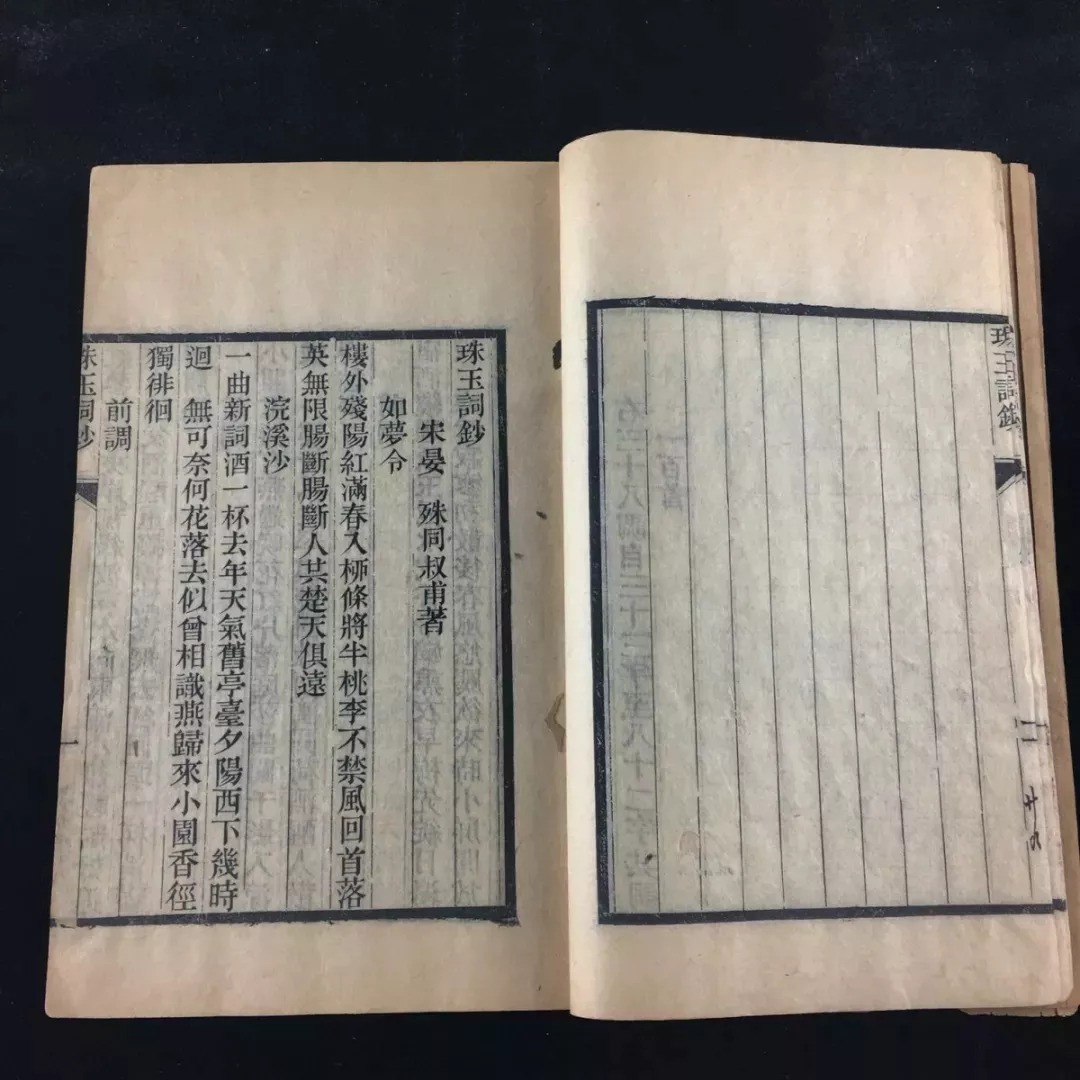 珠玉詞鈔
珠玉詞鈔
宋晏　殊同叔甫著
如夢令
樓外殘陽紅滿春入桺條將半桃李不禁風回首落
英無限腸斷腸斷人共楚天俱遠
浣溪沙
一曲新詞酒一杯去年天氣舊亭臺夕陽西下幾時
迴　無可奈何花落去似曾相識燕歸來小園香徑
獨徘徊
前調
珠玉詞鈔
一